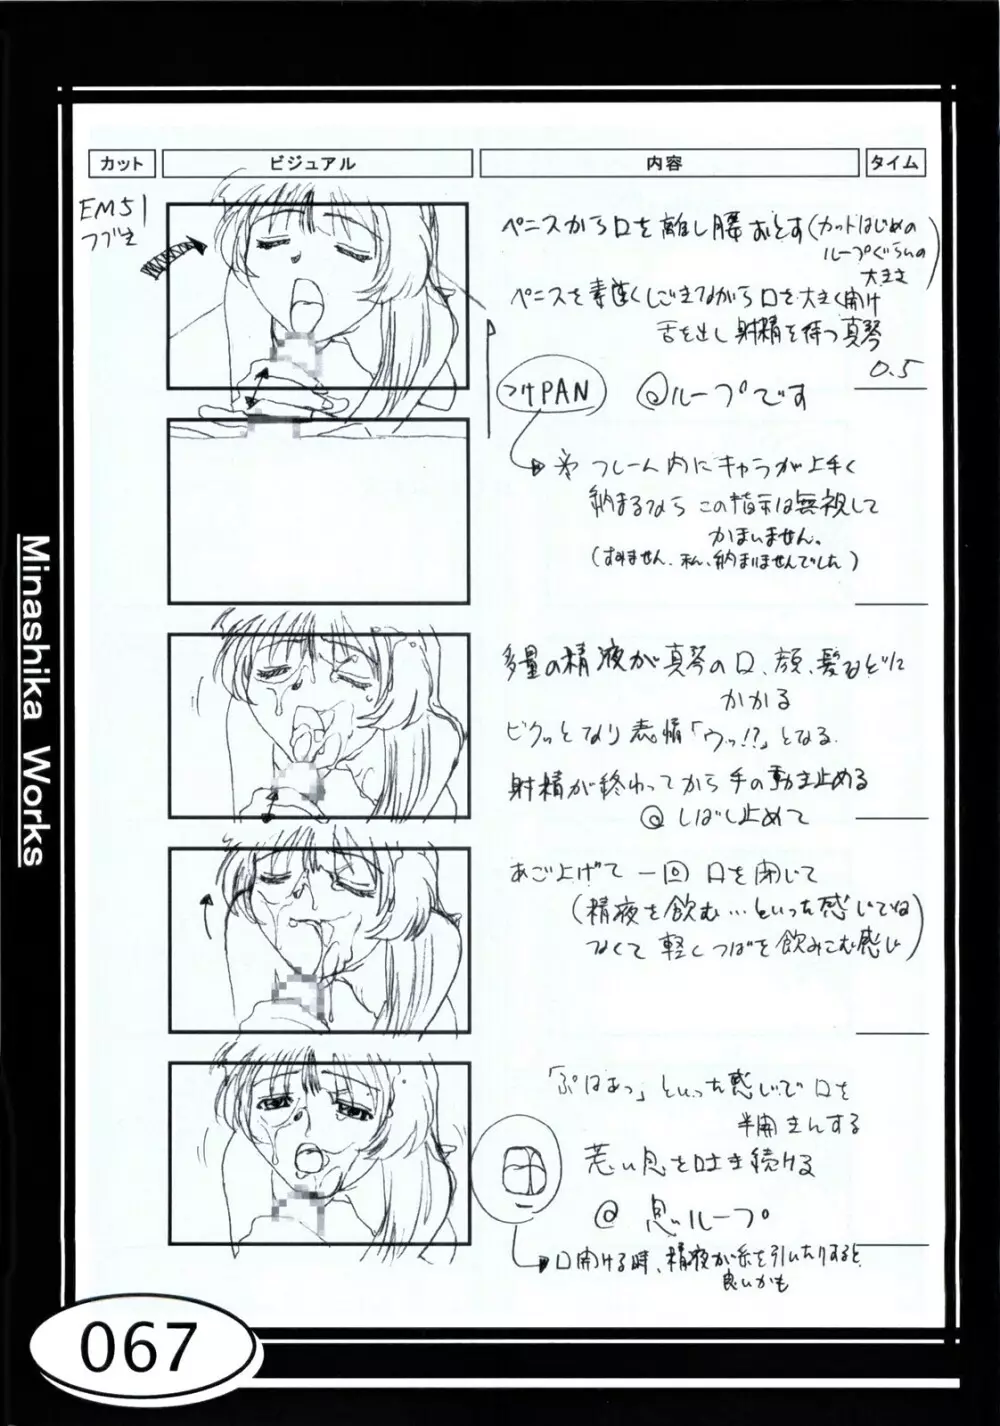 カット ビジュアル 内容 タイム
EM51
つづき
ペニスから口を離し腰おとす(カットはじめの
ループぐらいの
大きさ)
ペニスを素速くしごきながら口を大きく開け
舌を出し射精を待つ真琴
0.5
つけPAN
@ループです
※フレーム内にキャラが上手く
納まるなら この指示は無視して
かまいません。
(すみません、私、納まりませんでした)
多量の精液が真琴の口、顔、髪などに
かかる
ビクッとなり表情「ウッ!?」となる
射精が終わってから手の動き止める
@しばし止めて
あご上げて 一回 口を閉じて
(精液を飲む…といった感じでは
なくて 軽く つばを飲みこむ感じ)
「ぷはぁっ」といった感じで口を
半開きにする
荒い息を吐き続ける
@ 息ループ
口開ける時、精液が糸を引いたりすると
良いかも
Minashika Works
067